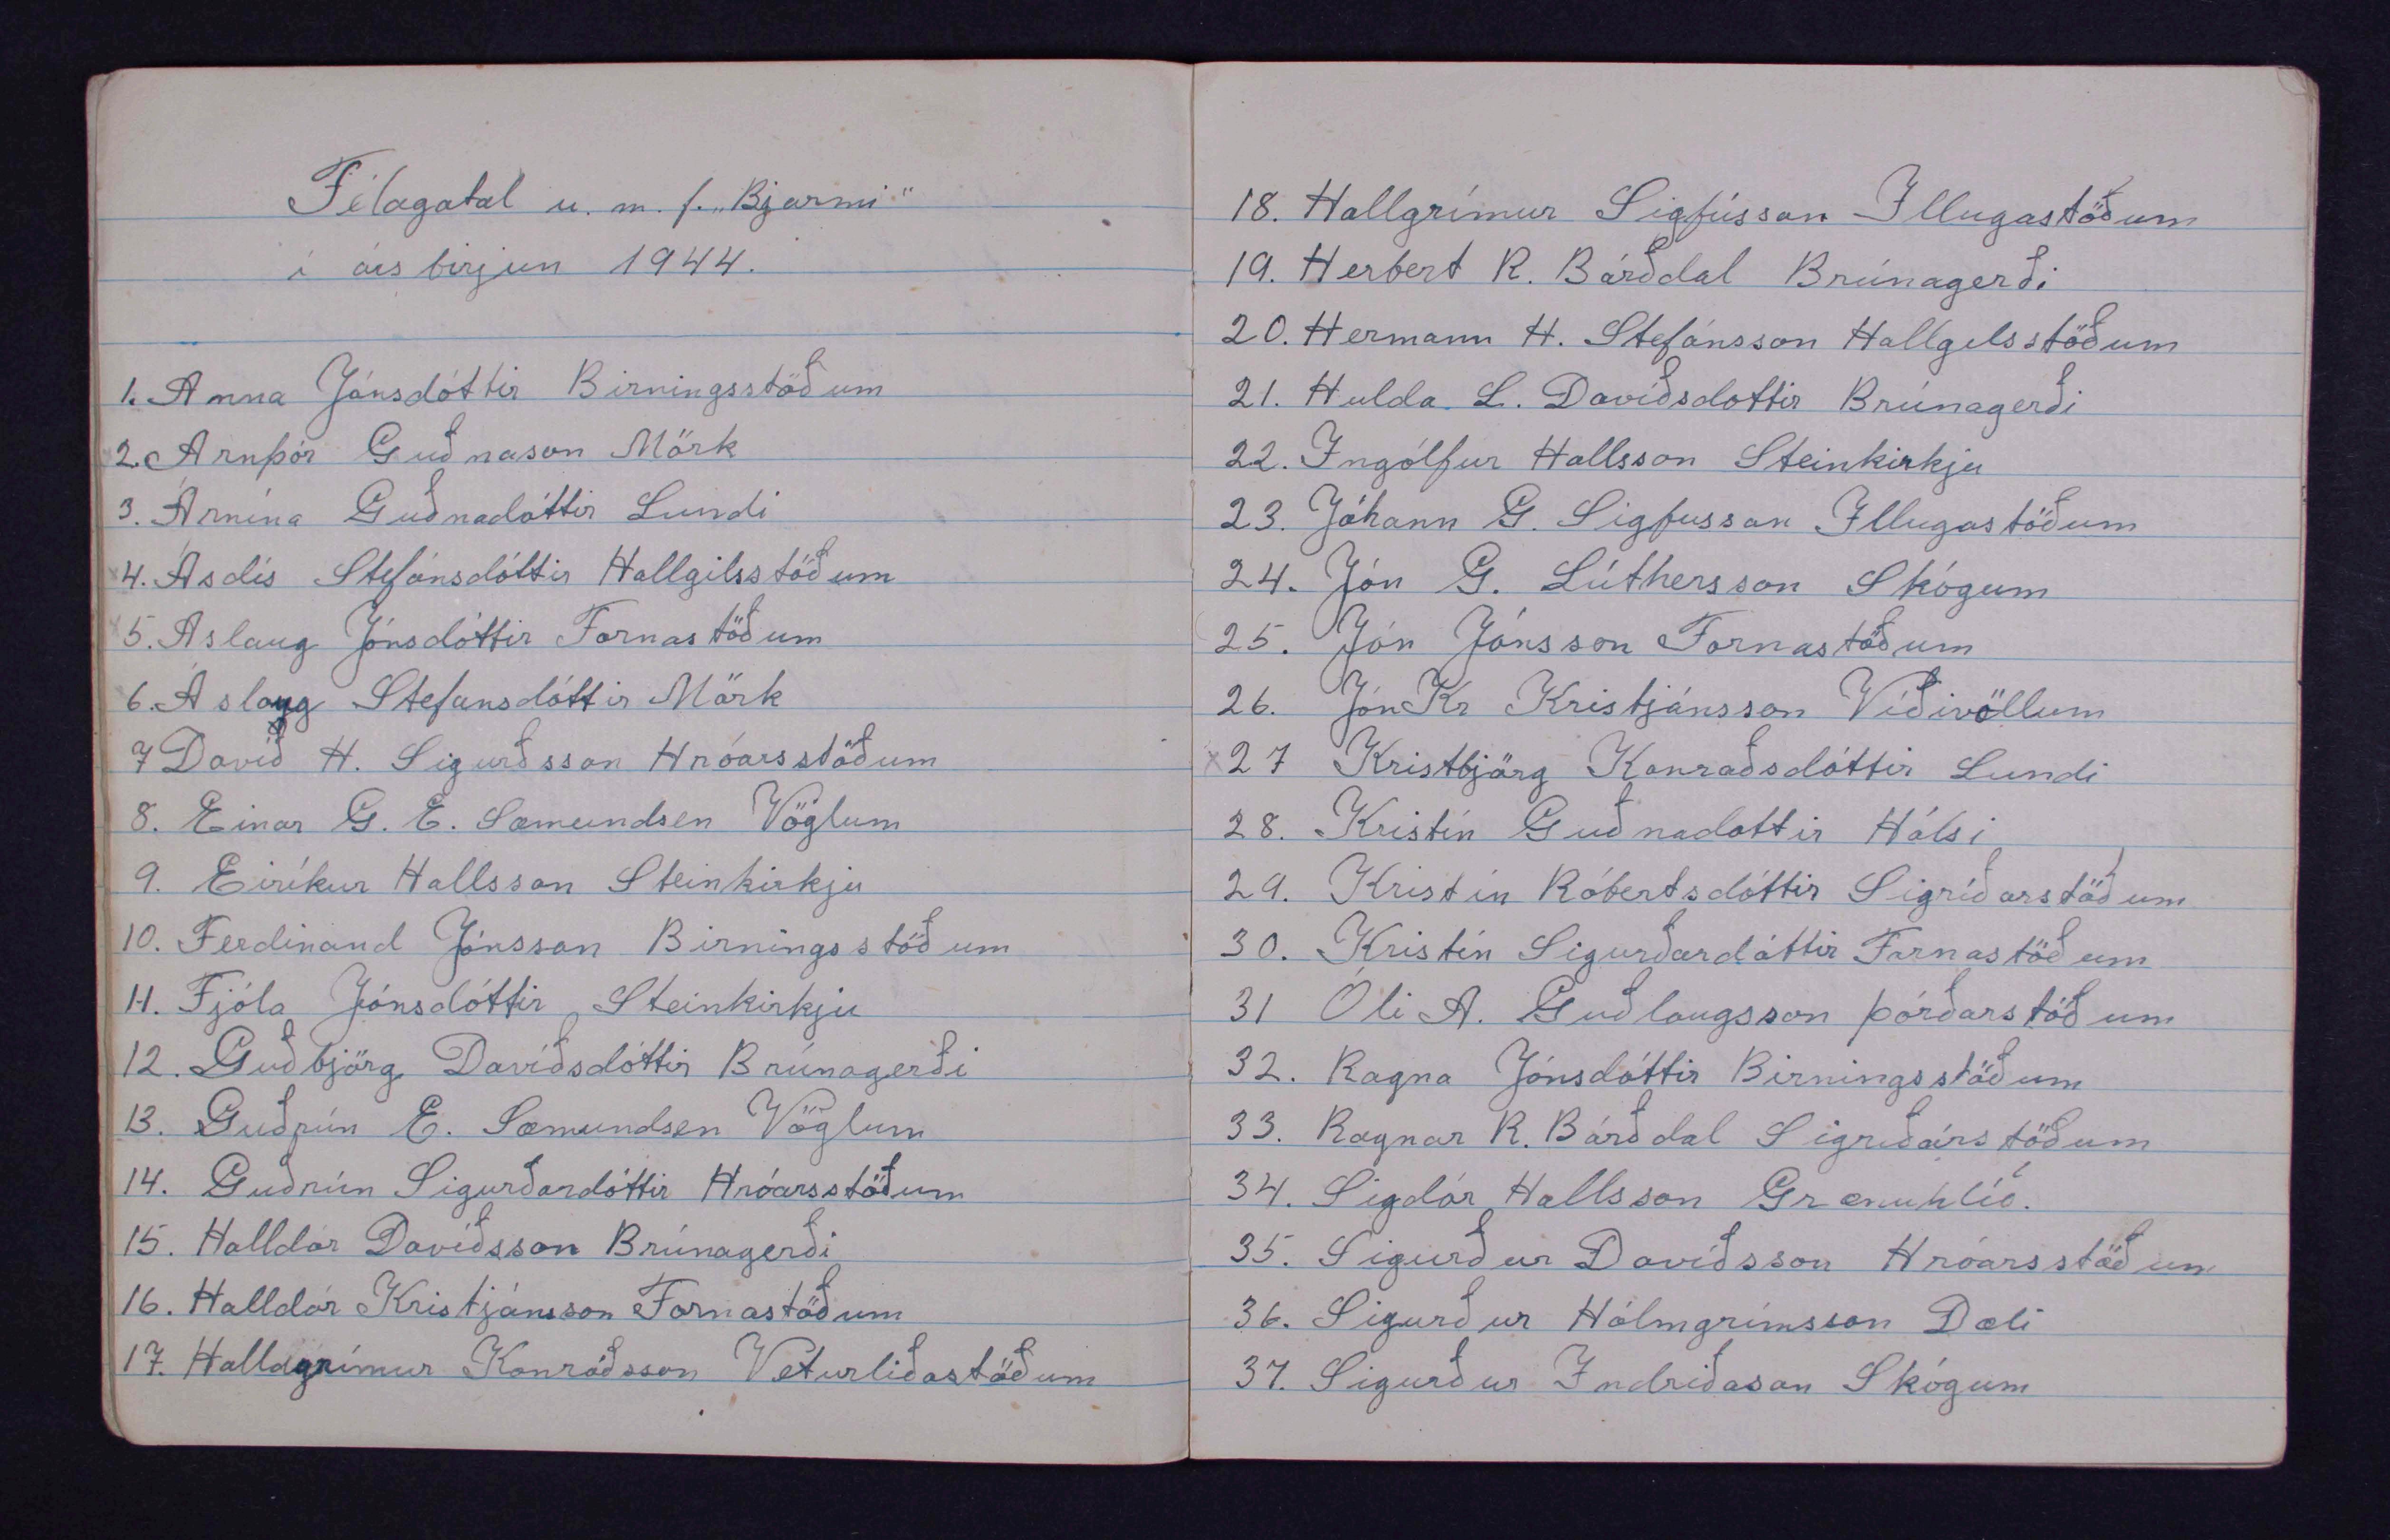 Félagatal u. m. f. „Bjarmi"
í árs birjun 1944.
1. Anna Jónsdóttir Birningsstöðum
2. Arnþór Guðnason Mörk
3. Árnína Guðnadóttir Lundi
x4. Ásdís Stefánsdóttir Hallgilsstöðum
x5. Áslaug Jónsdóttir Fornastöðum
6. Áslaug Stefansdóttir Mörk
7 Davið H. Sigurðsson Hróarsstöðum
8. Einar G. E. Sæmundsen Vöglum
9. Eiríkur Hallsson Steinkirkju
10. Ferdinand Jónsson Birningsstöðum
11. Fjóla Jónsdóttir Steinkirkju
12. Guðbjörg Davíðsdóttir Brúnagerði
13. Guðrún E. Sæmundsen Vöglum
14. Guðrún Sigurðardóttir Hróarsstöðum
15. Halldór Davíðsson Brúnagerði
16. Halldór Kristjánsson Fornastöðum
17. Halldgrímur Konráðsson Veturliðastöðum
18. Hallgrímur Sigfússon Illugastöðum
19. Herbert R. Bárðdal Brúnagerði
20. Hermann H. Stefánsson Hallgilsstöðum
21. Hulda L. Davíðsdottir Brúnagerði
22. Ingólfur Hallsson Steinkirkju
23. Jóhann G. Sigfusson Illugastöðum
24. Jón G. Lúthersson Skógum
25. Jón Jónsson Fornastöðum
26. Jón Kr Kristjánsson Víðivöllum
x27 Kristbjörg Konraðsdóttir Lundi
28. Kristín Guðnadottir Hálsi
29. Kristín Róbertsdóttir Sigríðarstöðum
30. Kristín Sigurðardóttir Fornastöðum
31 Óli A. Guðlaugsson Þórðarstöðum
32. Ragna Jónsdóttir Birningsstöðum
33. Ragnar R. Bárðdal Sigriðárstöðum
34. Sigdór Hallsson Grænuhlíð.
35. Sigurður Davíðsson Hróarsstöðum
36. Sigurður Hólmgrímsson Dæli
37. Sigurður Indriðason Skógum